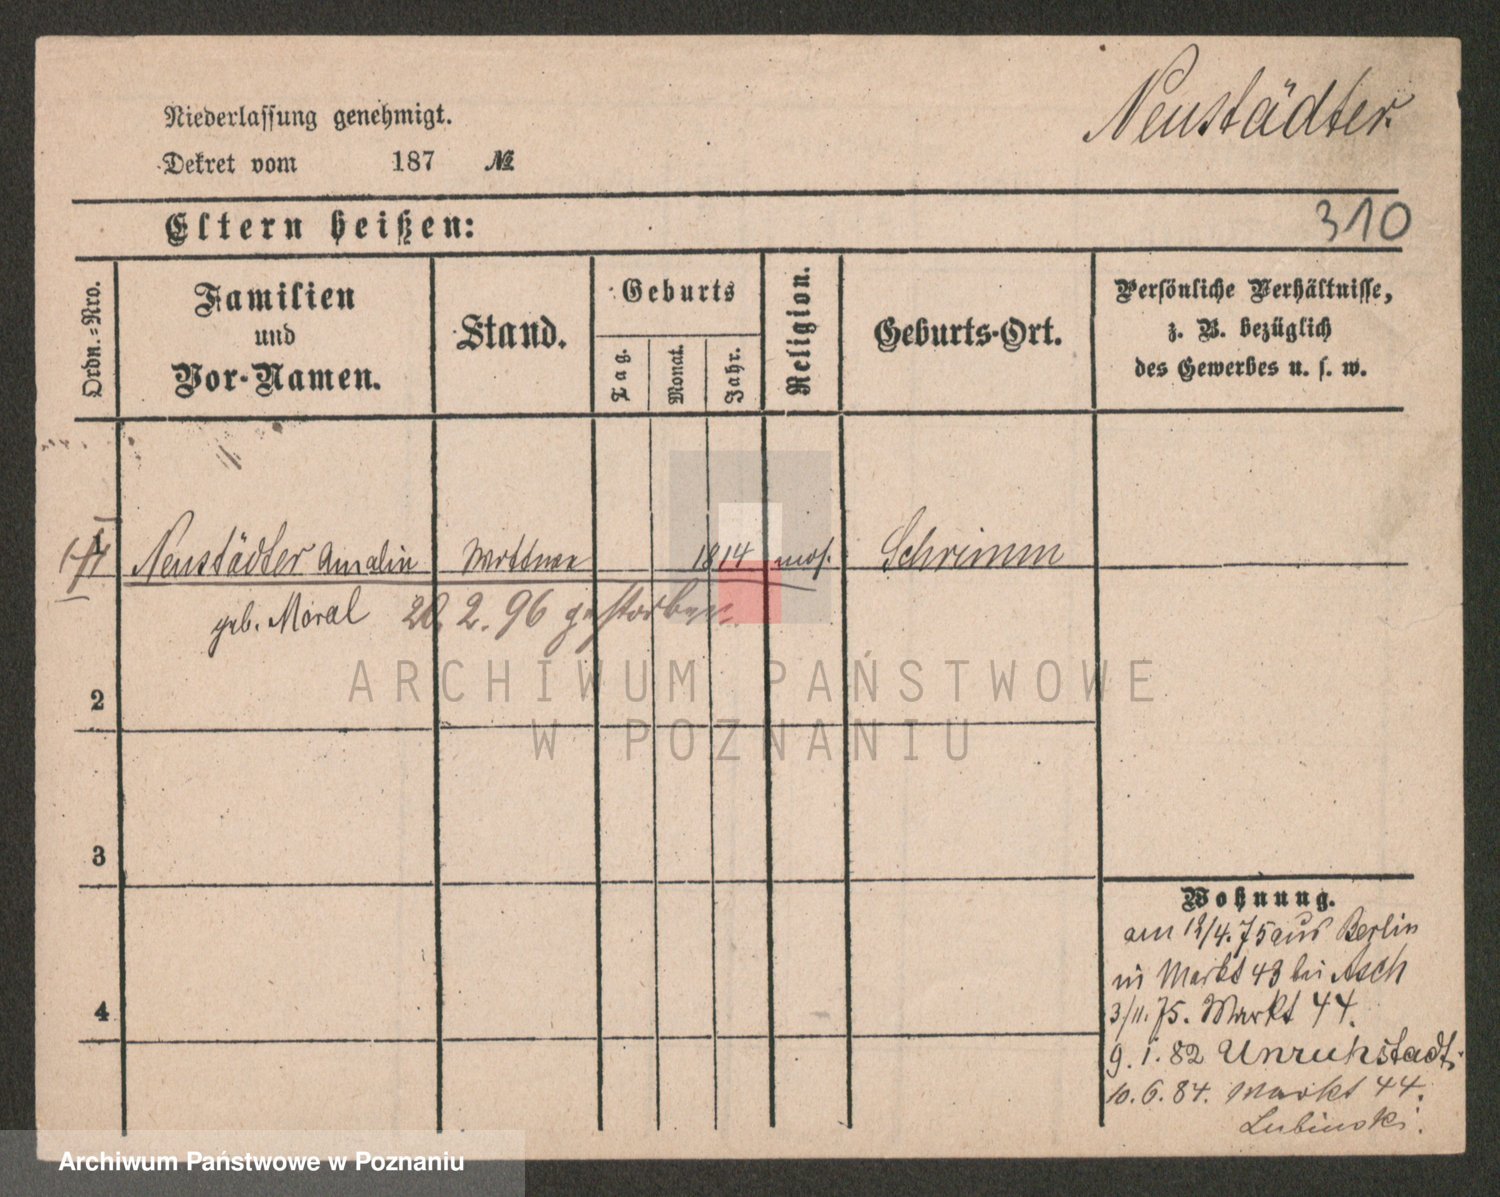 Niederlassung genehmigt.
Dekret vom 187 №
Neustädter.
Eltern heißen:
310
Ordn.=Nro.
Familien
und
Vor-Namen.
Stand.
Geburts
Tag.
Monat.
Jahr.
Religion.
Geburts-Ort.
Persönliche Verhältnisse,
z. B. bezüglich
des Gewerbes u. s. w.
1
Neustädter Amalie Wittwe 1814 mos. Schrimm
geb. Moral 20. 2. 96 gestorben.
2
3
4
Wohnung.
am 12/4. 75 aus Berlin
in Markt 48 bei Asch
3/11. 75. Markt 44.
9. 1. 82 Unruhstadt.
10. 6. 84. Markt 44.
Lubinski.
ARCHIWUM PAŃSTWOWE
W POZNANIU
Archiwum Państwowe w Poznaniu